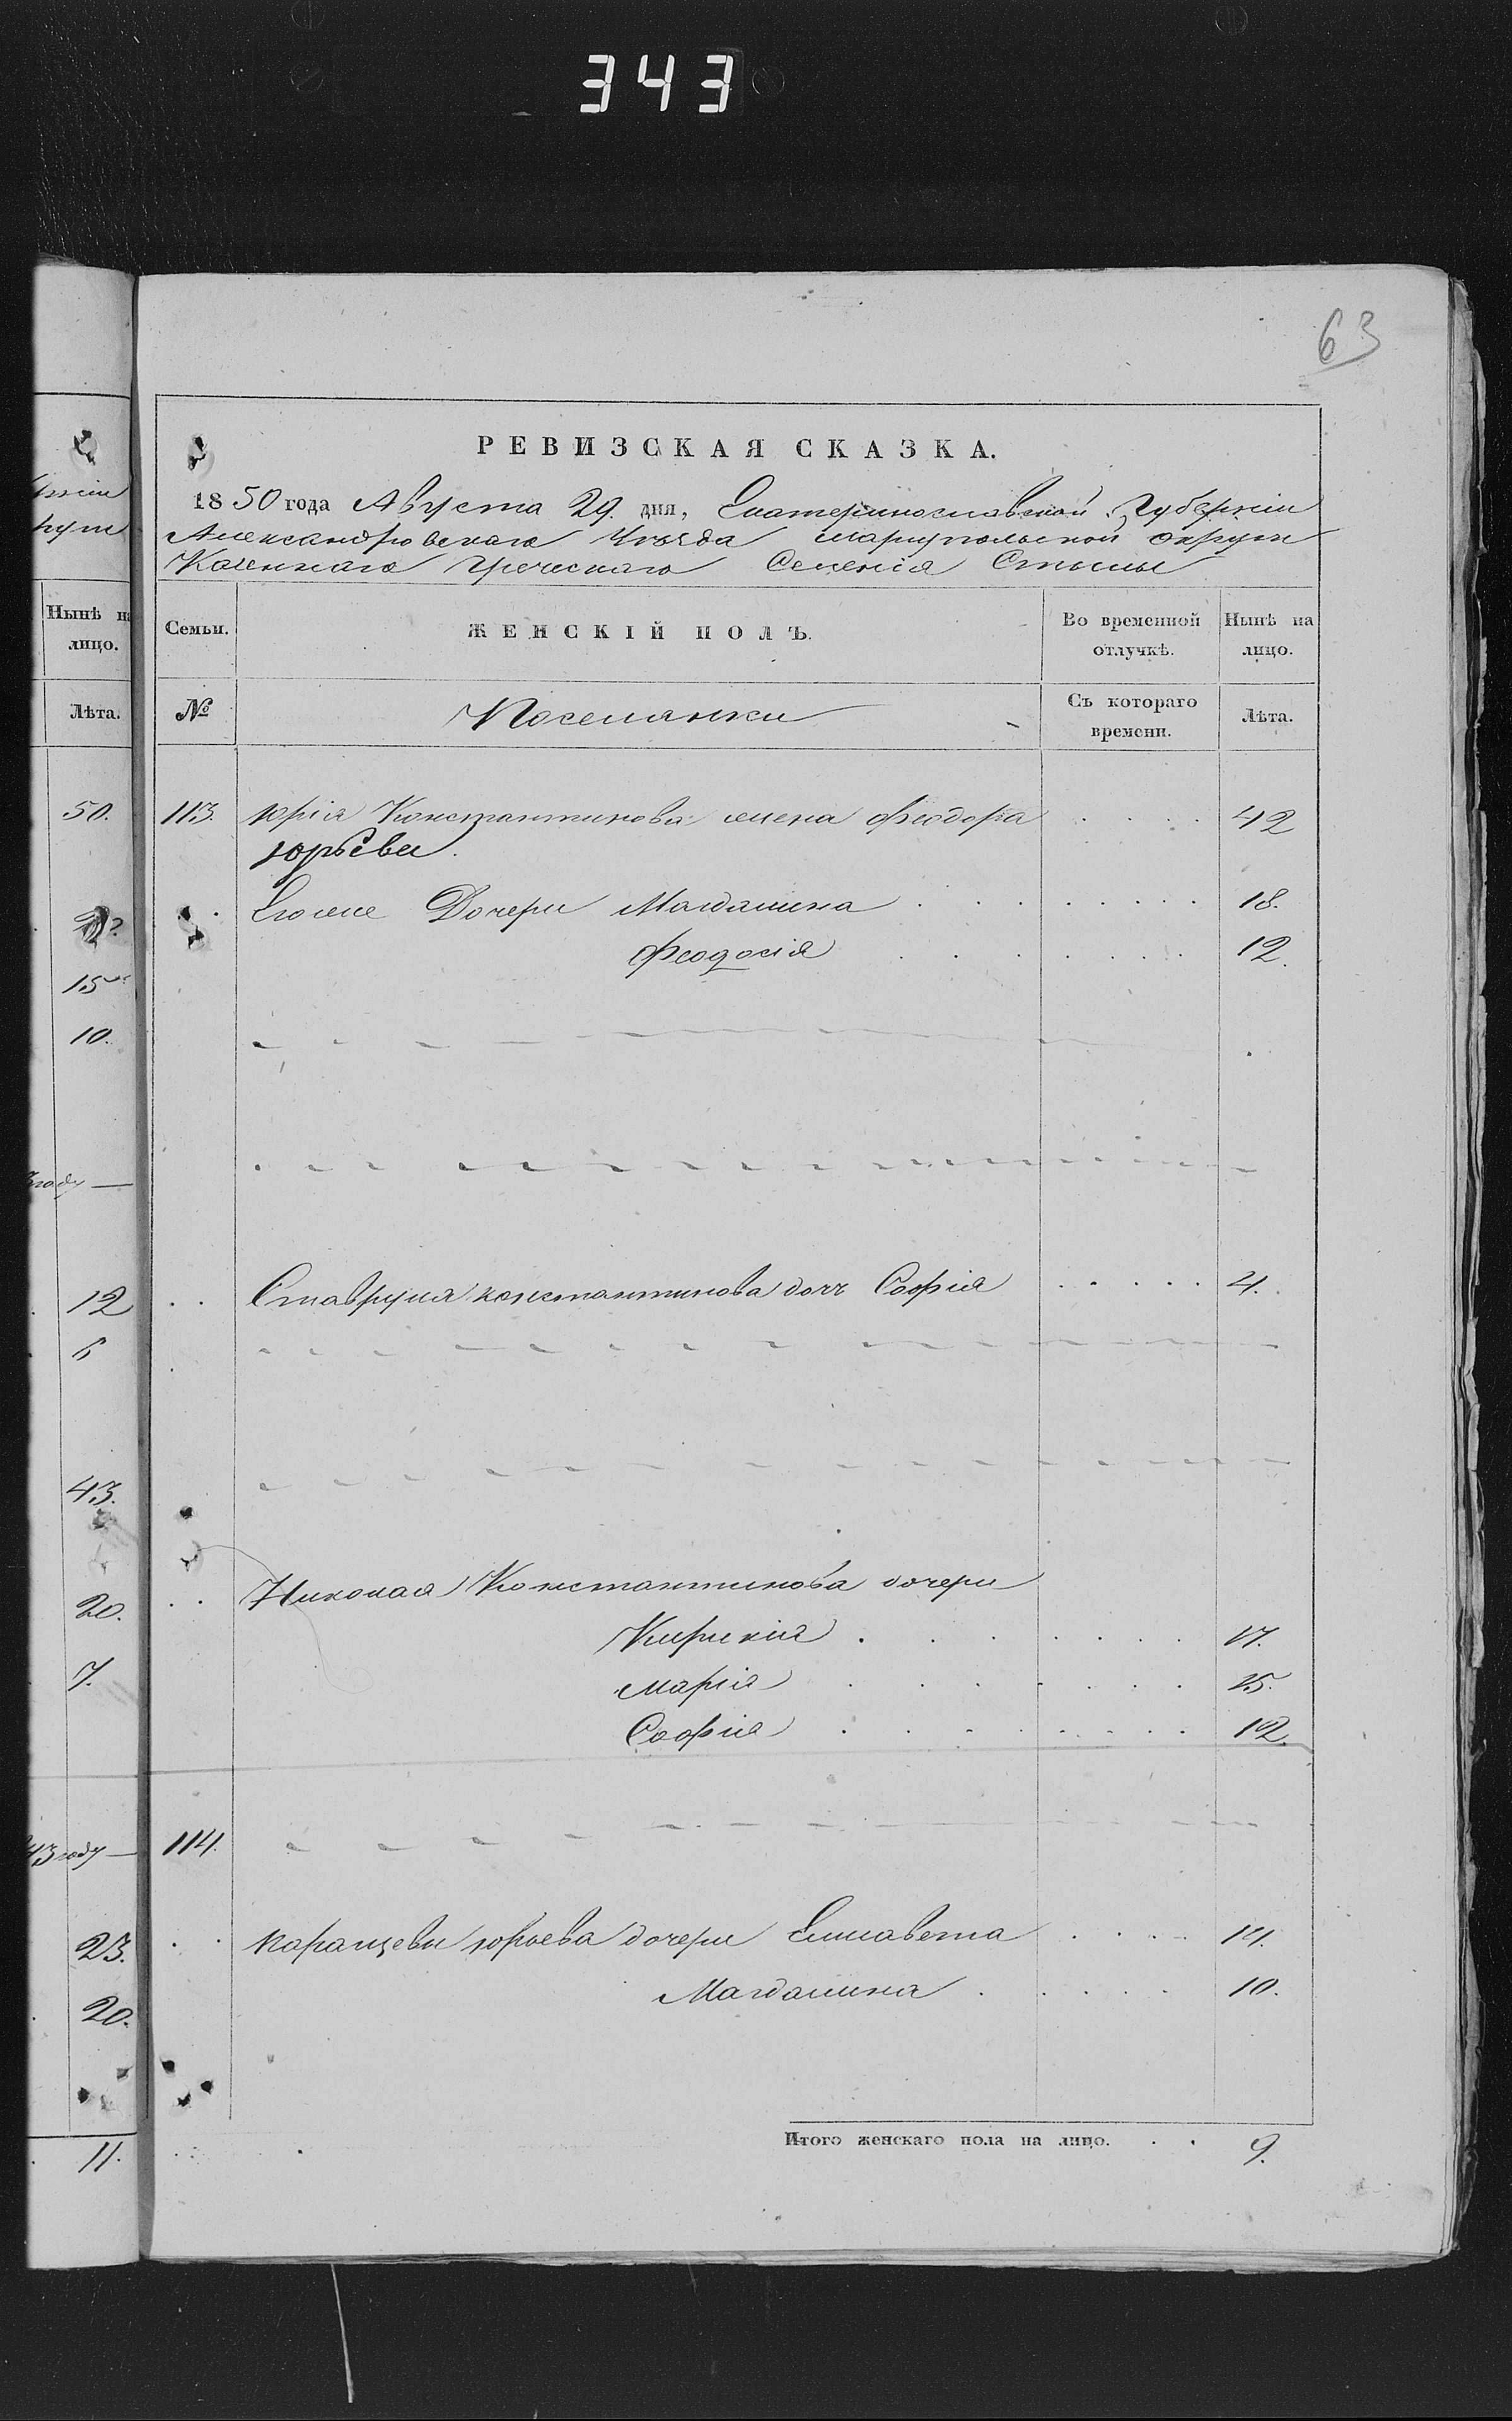 343
63
РЕВИЗСКАЯ СКАЗКА.
1850 года Августа 29. дня, Екатеринославской Губерніи
Александровскаго Уѣзда Маріупольской округи
Казеннаго Греческаго Селенія Стылы
Нынѣ на лицо.
Лѣта.
Семьи.
ЖЕНСКІЙ ПОЛЪ.
Во временной отлучкѣ.
Нынѣ на лицо.
№
Поселянки
Съ котораго времени.
Лѣта.
50.
113. Юрія Константинова жена Феодора 42
Юрьева.
Егоже Дочери Магдалина 18.
Феодосія 12.
15
10.
году
12
Ставруля Константинова дочь Софія 4.
6
43.
20.
Николая Константинова дочери
Кирикія 17.
7.
Марія 15.
Софія 12.
43 году
114.
23.
Карапцеви Юрьева дочери Елисавета 14.
20.
Магдалина 10.
11.
Итого женскаго пола на лицо. 9.